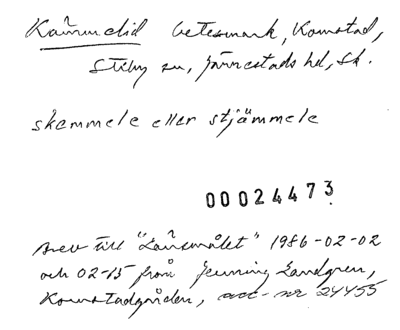 betesmark, Komstad,
Stiby sn, Järrestads hd, Sk.
skammele eller stjämmele
00024473
Brev till "Länsmålet" 1986-02-02
och 02-15 från Jenning Landgren,
Komstadgården, acc-nr 24455